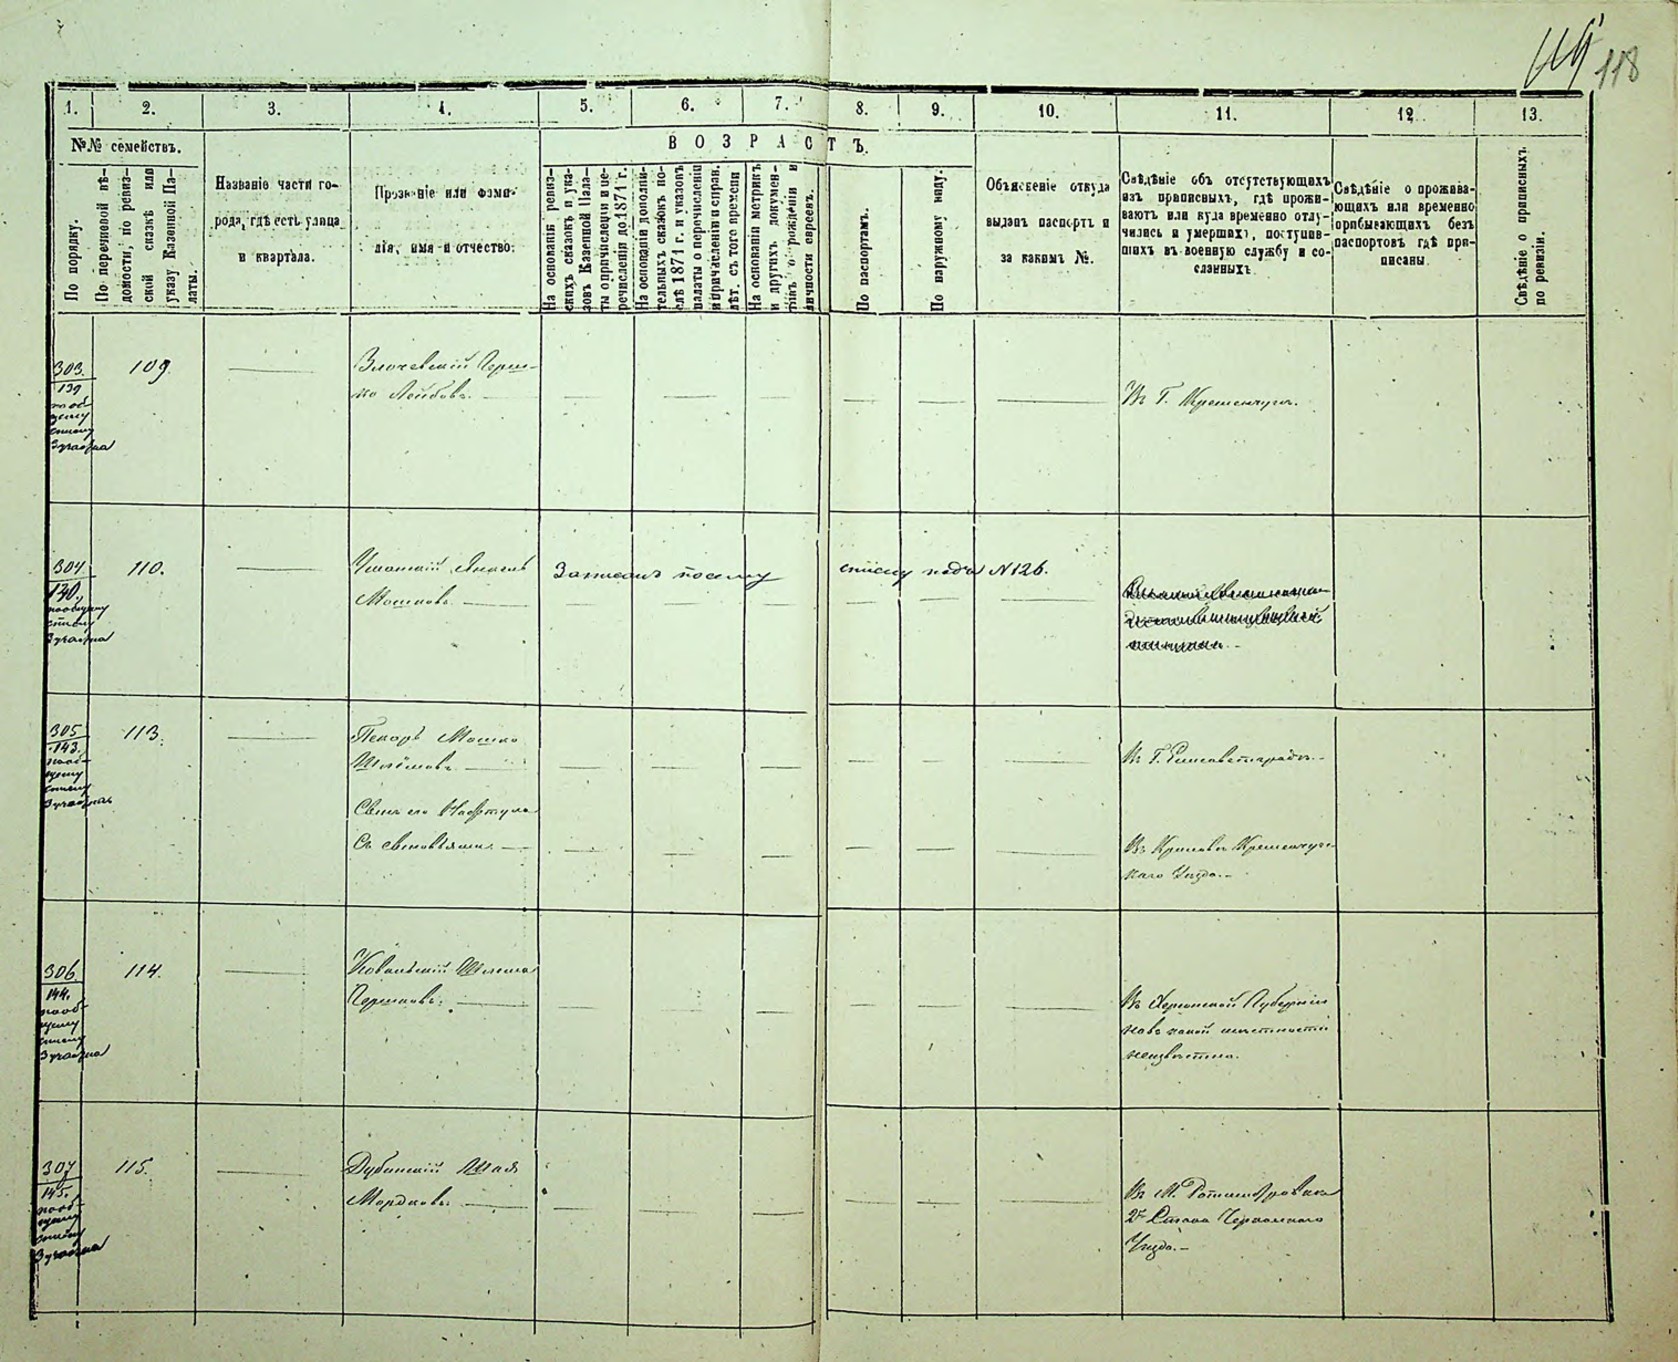 118
1. 2. 3. 4. 5. 6. 7. 8. 9. 10. 11. 12. 13.
№№ семействъ.
ВОЗРАСТЪ.
По порядку.
По перечневой вѣ-
домости, по ревиз-
ской сказкѣ или
указу Казенной Па-
латы.
Названіе части го-
рода, гдѣ есть улица
и квартала.
Прозваніе или фами-
лія, имя и отчество.
На основаніи ревиз-
скихъ сказокъ и ука-
зовъ Казенной Пала-
ты о причисленіи и пе-
речисленіи до 1871 г.
На основаніи дополни-
тельныхъ сказокъ по-
слѣ 1871 г. и указовъ
палаты о перечисленіи
и причисленіи и справ.
лѣт. съ того времени
На основаніи метрикъ
и другихъ докумен-
товъ о рожденіи и
личности евреевъ.
По паспортамъ.
По наружному виду.
Объясненіе откуда
выданъ паспортъ и
за какимъ №.
Свѣдѣніе объ отсутствующихъ
изъ приписныхъ, гдѣ прожи-
ваютъ или куда временно отлу-
чились и умершихъ, поступив-
шихъ въ военную службу и со-
сланныхъ
Свѣдѣніе о прожива-
ющихъ или временно
прибывающихъ безъ
паспортовъ гдѣ при-
писаны.
Свѣдѣніе о приписныхъ
по ревизіи.
303.
139
по об-
щему
списку
3 участка
109.
Злочевскій Герш-
ко Лейбовъ.
Въ Г. Кременчугѣ.
304
140.
по общему
списку
3 участка
110.
Уманскій Янкель
Мошковъ
Записанъ по сему списку подъ N 126.
305
143.
по об-
щему
списку
3 участка
113.
Пекарь Мошко
Шлёмовъ
Въ Г. Елисаветградѣ.
Сынъ его Нафтула
Съ сыновьями.
Въ Крюковѣ Кременчуг-
скаго Уѣзда.
306
144.
по об-
щему
списку
3 участка
114.
Ковальскій Шлёма
Гершковъ.
Въ Херсонской Губерніи
но въ какой мѣстности
неизвѣстно.
307
145.
по об-
щему
списку
3 участка
115.
Дубинскій Шая
Мордковъ.
Въ М. Ротмистровкѣ
2го Стана Черкасскаго
Уѣзда.